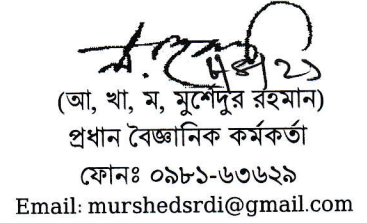 (আ, খা, ম, মুর্শেদুর রহমান)
প্রধান বৈজ্ঞানিক কর্মকর্তা
ফোনঃ ০৯৮১-৬৩৬২৯
Email: murshedsrdi@gmail.com